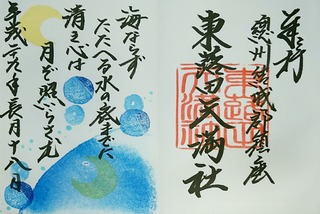 奉拝
總州結城郡鎮座
東蕗田天満社
海ならず
たたへる水の底までに
清き心は
月ぞ照らさむ
平成二九年長月十八日